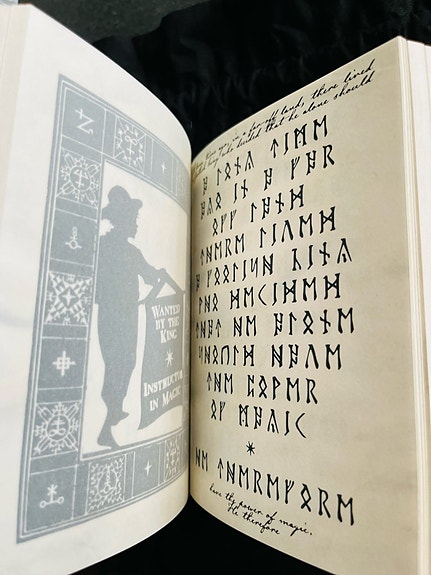 WANTED
BY THE
KING
INSTRUCTOR
IN MAGIC
time ago, in a far-off land, there lived
king who decided that he alone should
ᚨ ᛚᛟᚾᚷ ᛏᛁᛗᛖ
ᚨᚷᛟ ᛁᚾ ᚨ ᚠᚨᚱ
ᛟᚠᚠ ᛚᚨᚾᛞ
ᛏᚺᛖᚱᛖ ᛚᛁᚢᛖᛞ
ᚨ ᚠᛟᛟᛚᛁᛊᚺ ᚲᛁᚾᚷ
ᚹᚺᛟ ᛞᛖᚲᛁᛞᛖᛞ
ᛏᚺᚨᛏ ᚺᛖ ᚨᛚᛟᚾᛖ
ᛊᚺᛟᚢᛚᛞ ᚺᚨᚢᛖ
ᛏᚺᛖ ᛈᛟᚹᛖᚱ
ᛟᚠ ᛗᚨᚷᛁᚲ
ᚺᛖ ᛏᚺᛖᚱᛖᚠᛟᚱᛖ
have the power of magic.
He therefore